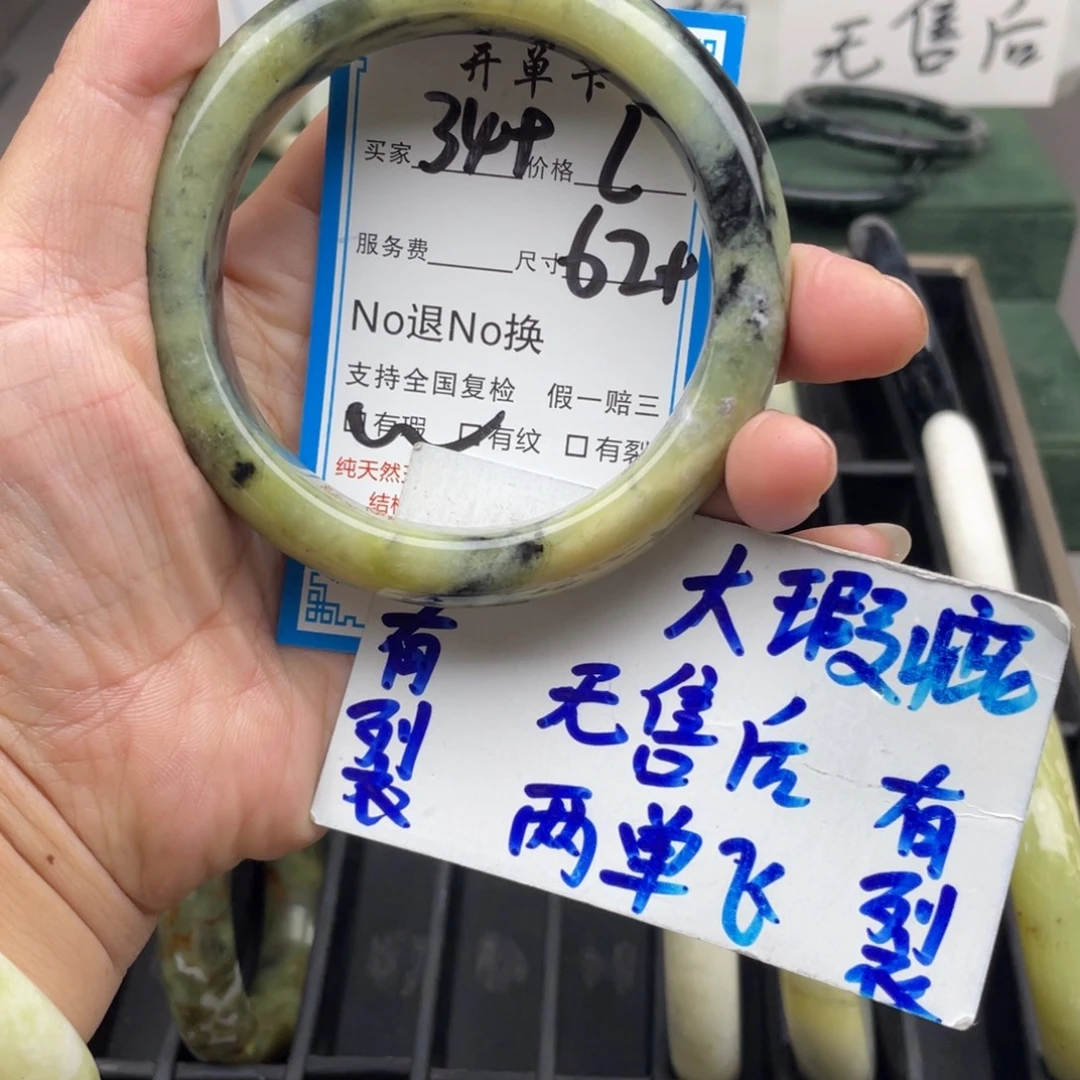 无售后
开单卡
买家 344 价格 L
服务费 尺寸 62+
No退No换
支持全国复检 假一赔三
有瑕 口有纹 口有裂
纯天然
结构
大瑕疵
无售后
两单飞
有裂
有裂